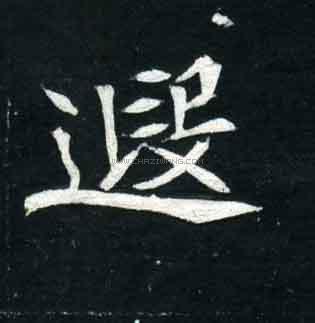 遐
WWW.CHAZIWANG.COM